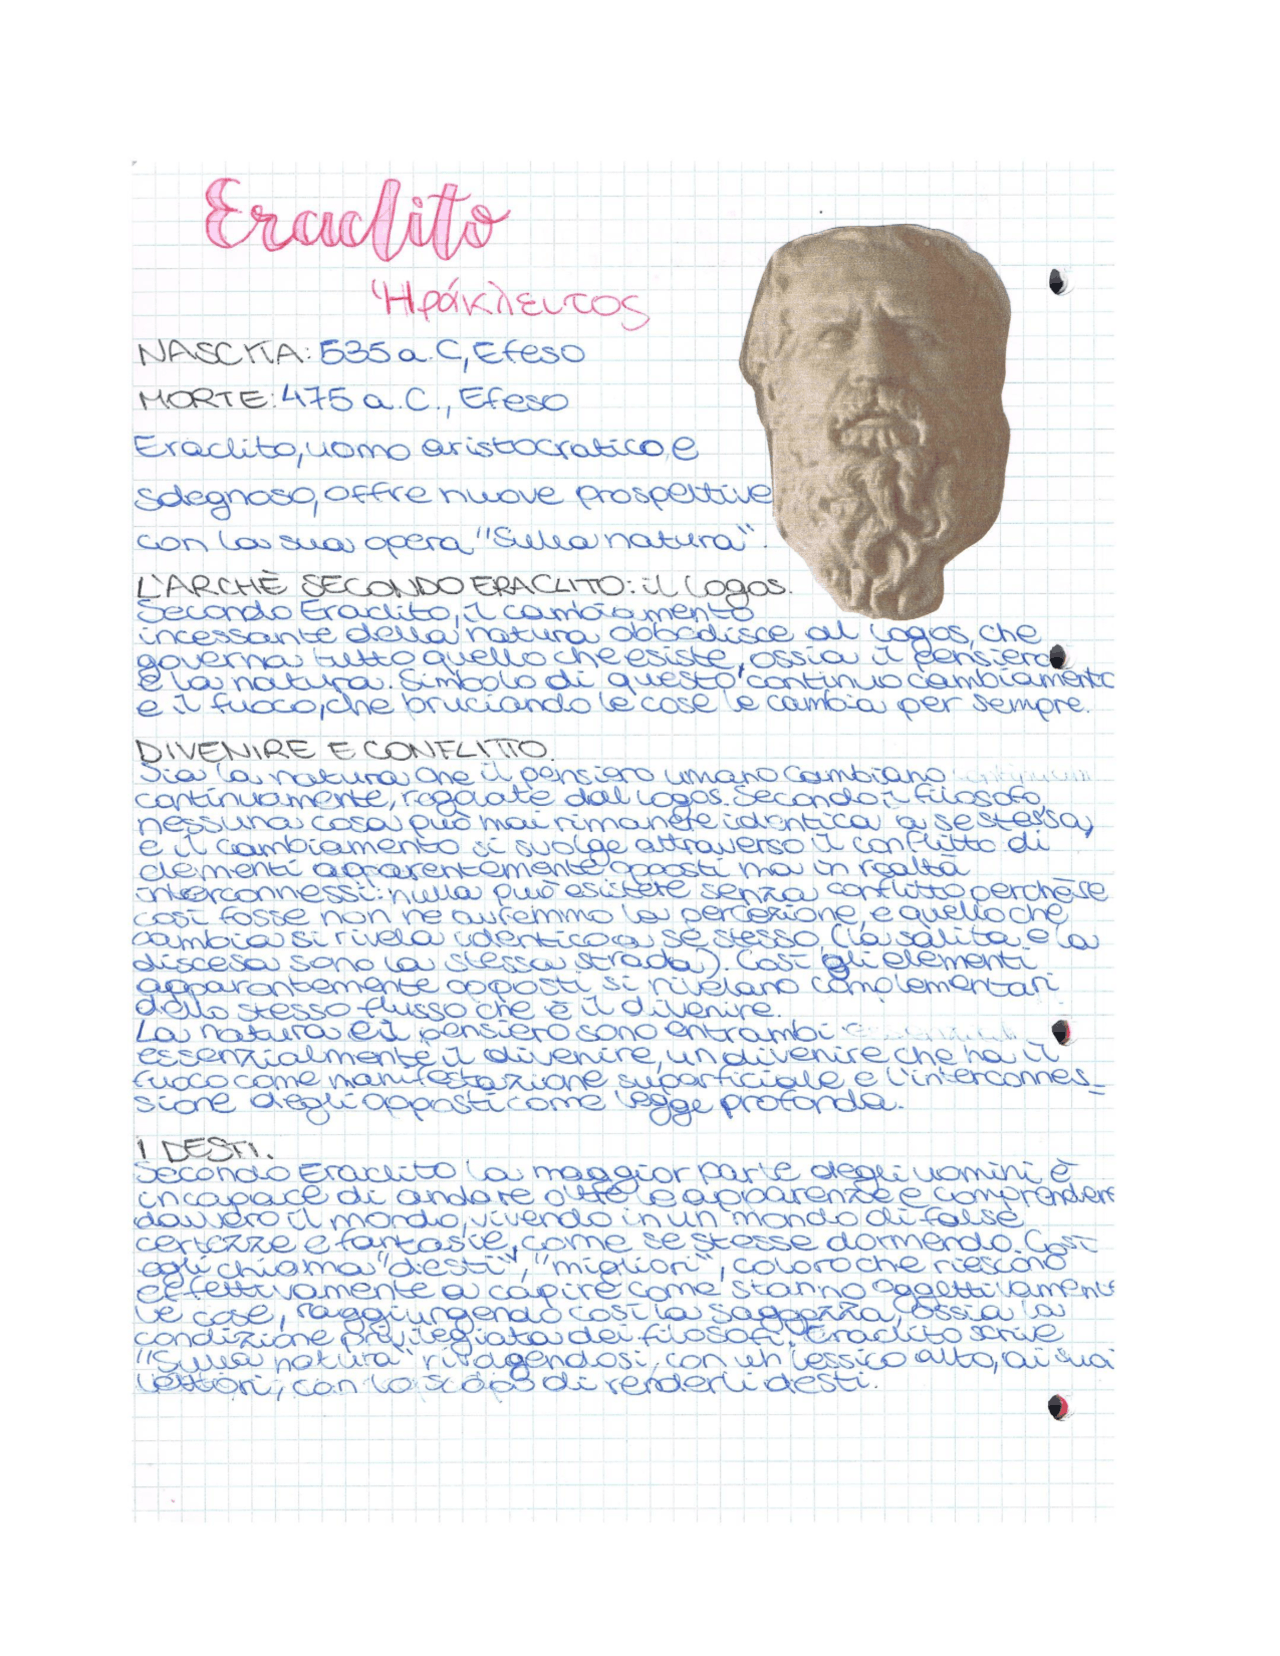 Eraclito
Ἡράκλειτος
NASCITA: 535 a.C, Efeso
MORTE: 475 a.C., Efeso
Eraclito, uomo aristocratico e
sdegnoso, offre nuove prospettive
con la sua opera "Sulla natura".
L'ARCHÈ SECONDO ERACLITO: il logos.
Secondo Eraclito, il cambiamento
incessante della natura obbedisce al logos, che
governa tutto quello che esiste, ossia il pensiero
e la natura. Simbolo di questo continuo cambiamento
è il fuoco, che bruciando le cose le cambia per sempre.
DIVENIRE E CONFLITTO.
Sia la natura che il pensiero umano cambiano
continuamente, regolate dal logos. Secondo il filosofo,
nessuna cosa può mai rimanere identica a se stessa,
e il cambiamento si svolge attraverso il conflitto di
elementi apparentemente opposti ma in realtà
interconnessi: nulla può esistere senza conflitto perchè se
così fosse non ne avremmo la percezione, e quello che
cambia si rivela identico a sé stesso (la salita e la
discesa sono la stessa strada). Così gli elementi
apparentemente opposti si rivelano complementari
dello stesso flusso che è il divenire.
La natura e il pensiero sono entrambi
essenzialmente il divenire, un divenire che ha il
fuoco come manifestazione superficiale, e l'interconnes_
sione degli opposti come legge profonda.
I DESTI.
Secondo Eraclito la maggior parte degli uomini è
incapace di andare oltre le apparenze e comprendere
davvero il mondo, vivendo in un mondo di false
certezze e fantasie, come se stesse dormendo. Così
egli chiama "desti", "migliori", coloro che riescono
effettivamente a capire come stanno oggettivamente
le cose, raggiungendo così la saggezza, ossia la
condizione privilegiata dei filosofi. Eraclito scrive
"Sulla natura" rivolgendosi, con un lessico alto, ai suoi
lettori, con lo scopo di renderli desti.